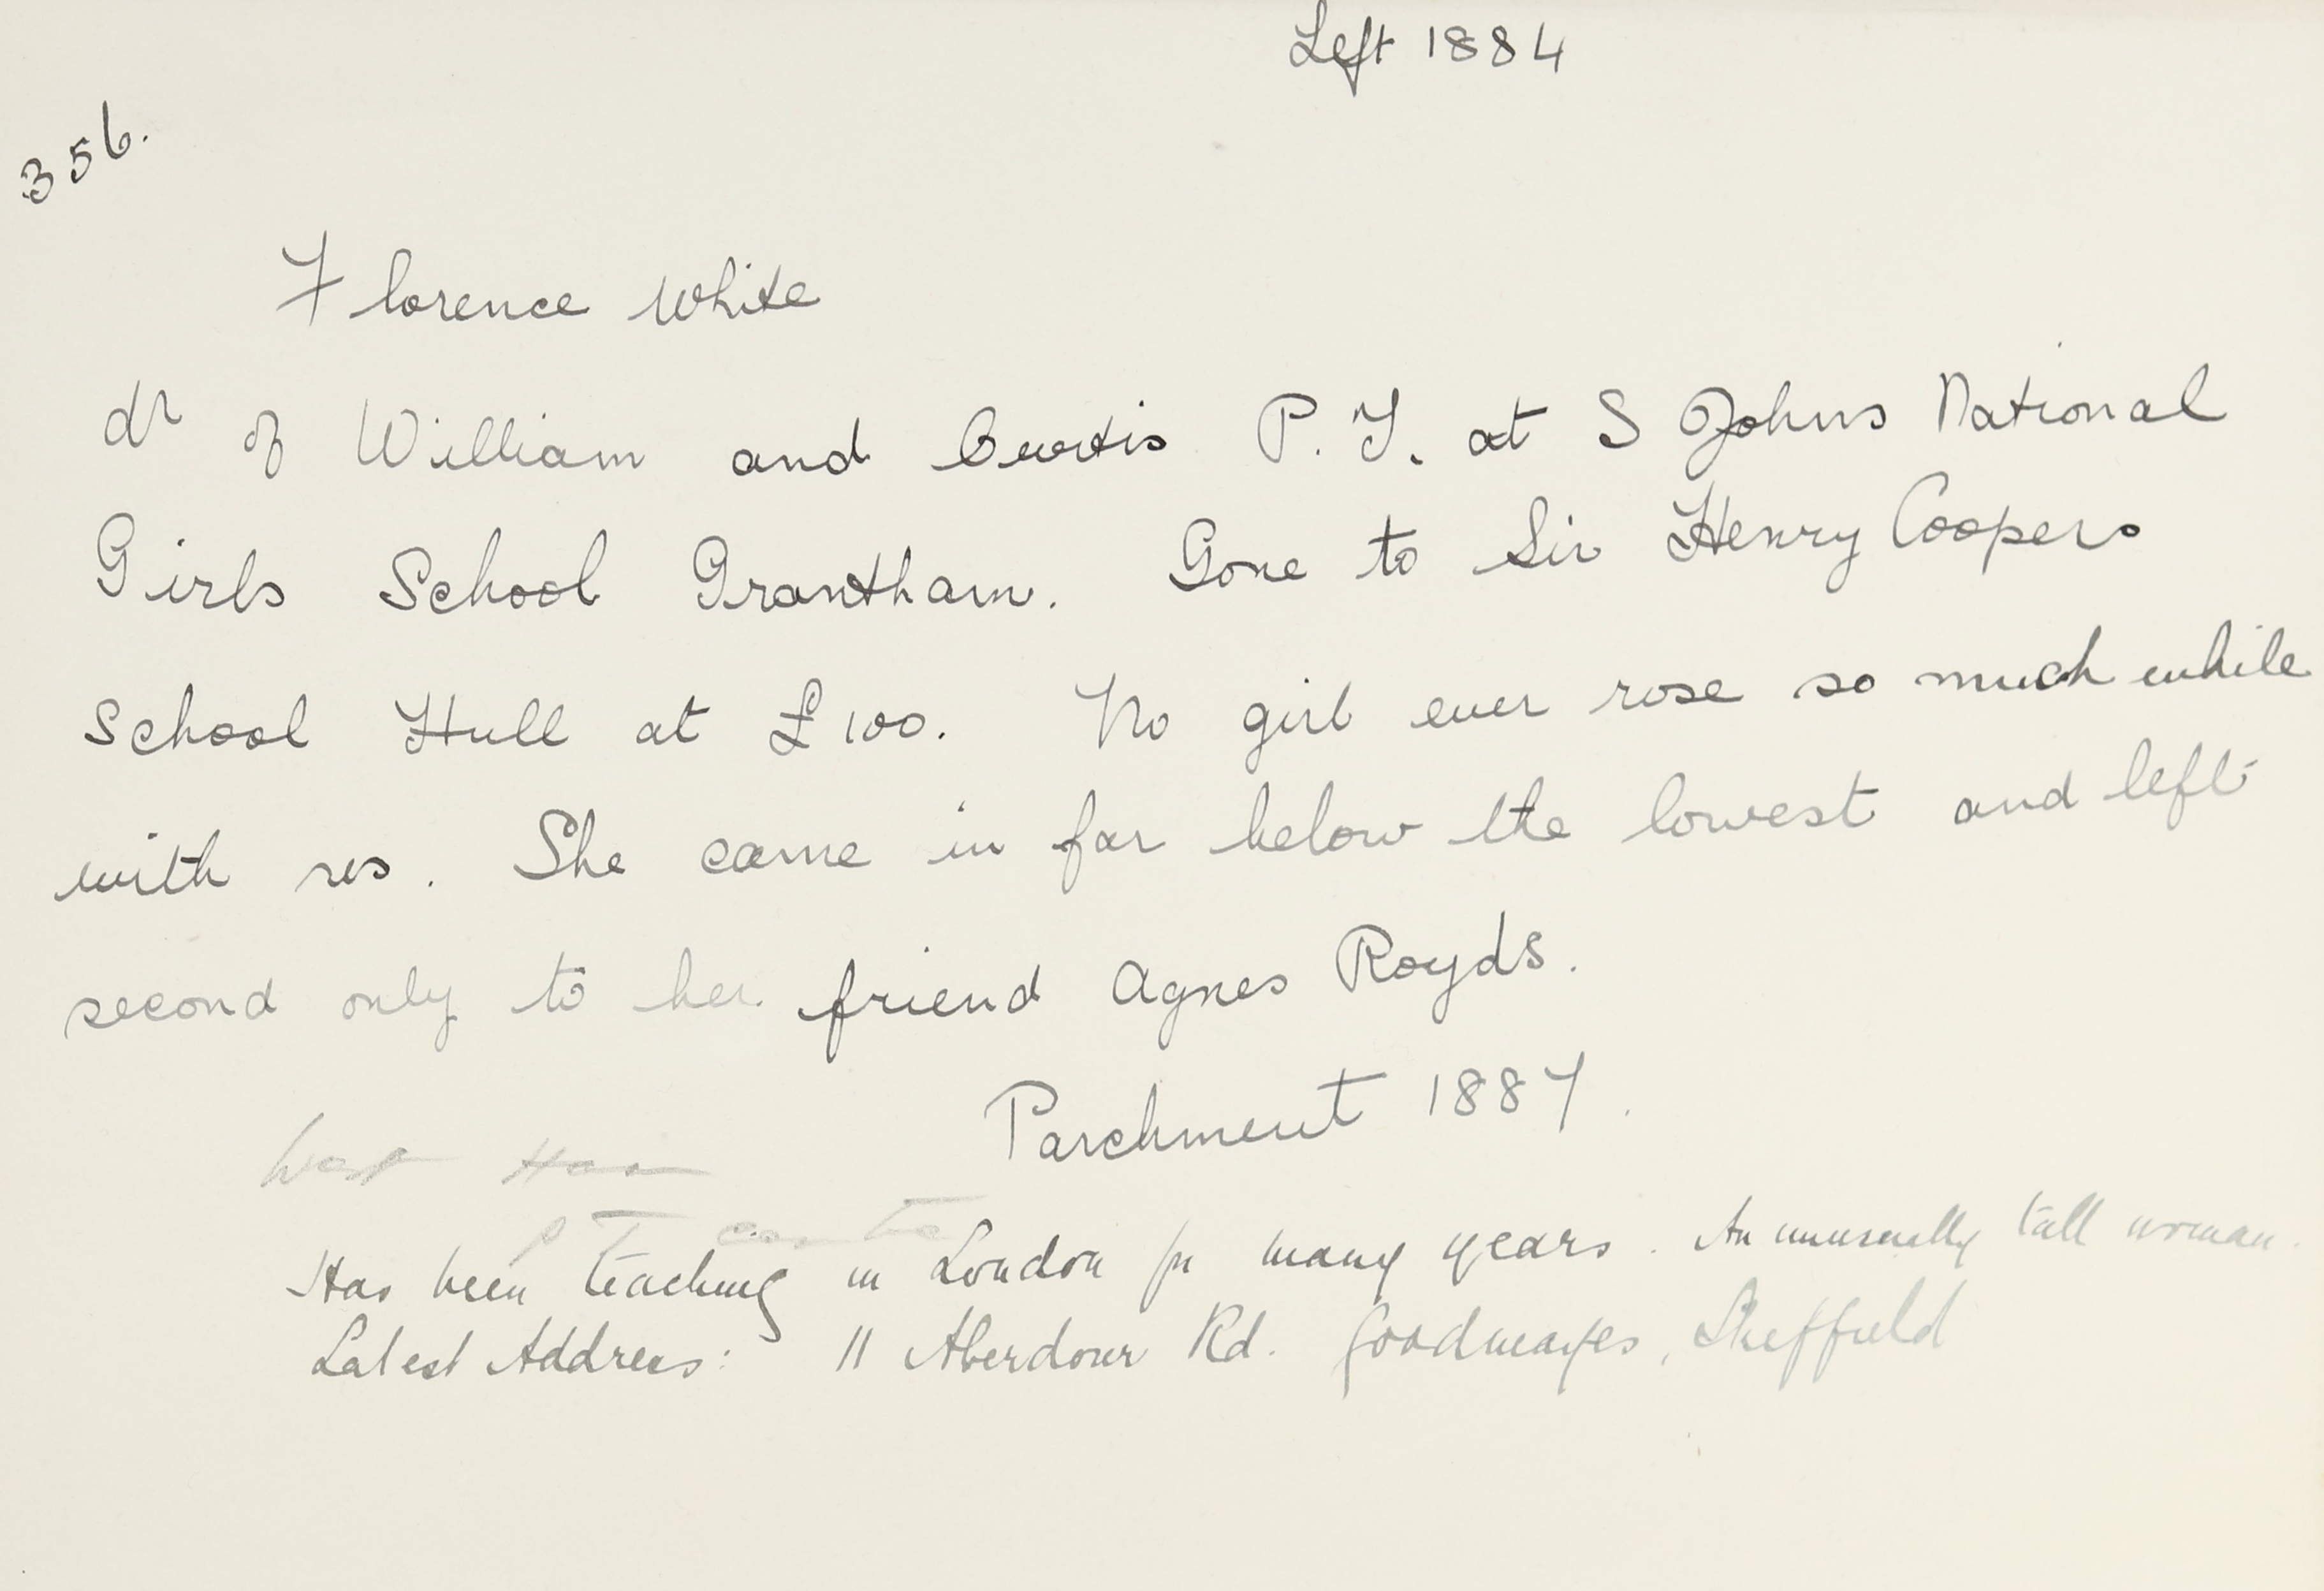 Left 1884
356.
Florence White
dr of William and Curtis P. T. at S Johns National
Girls School Grantham. Gone to Sir Henry Coopers
School Hull at £100. No girl ever rose so much while
with us. She came in far below the lowest and left
second only to her friend Agnes Royds.
Parchment 1887.
West Ham
P T
Has been teaching in London for many years. An unusually tall woman.
Latest Address: 11 Aberdour Rd. Goodmayes, Sheffield